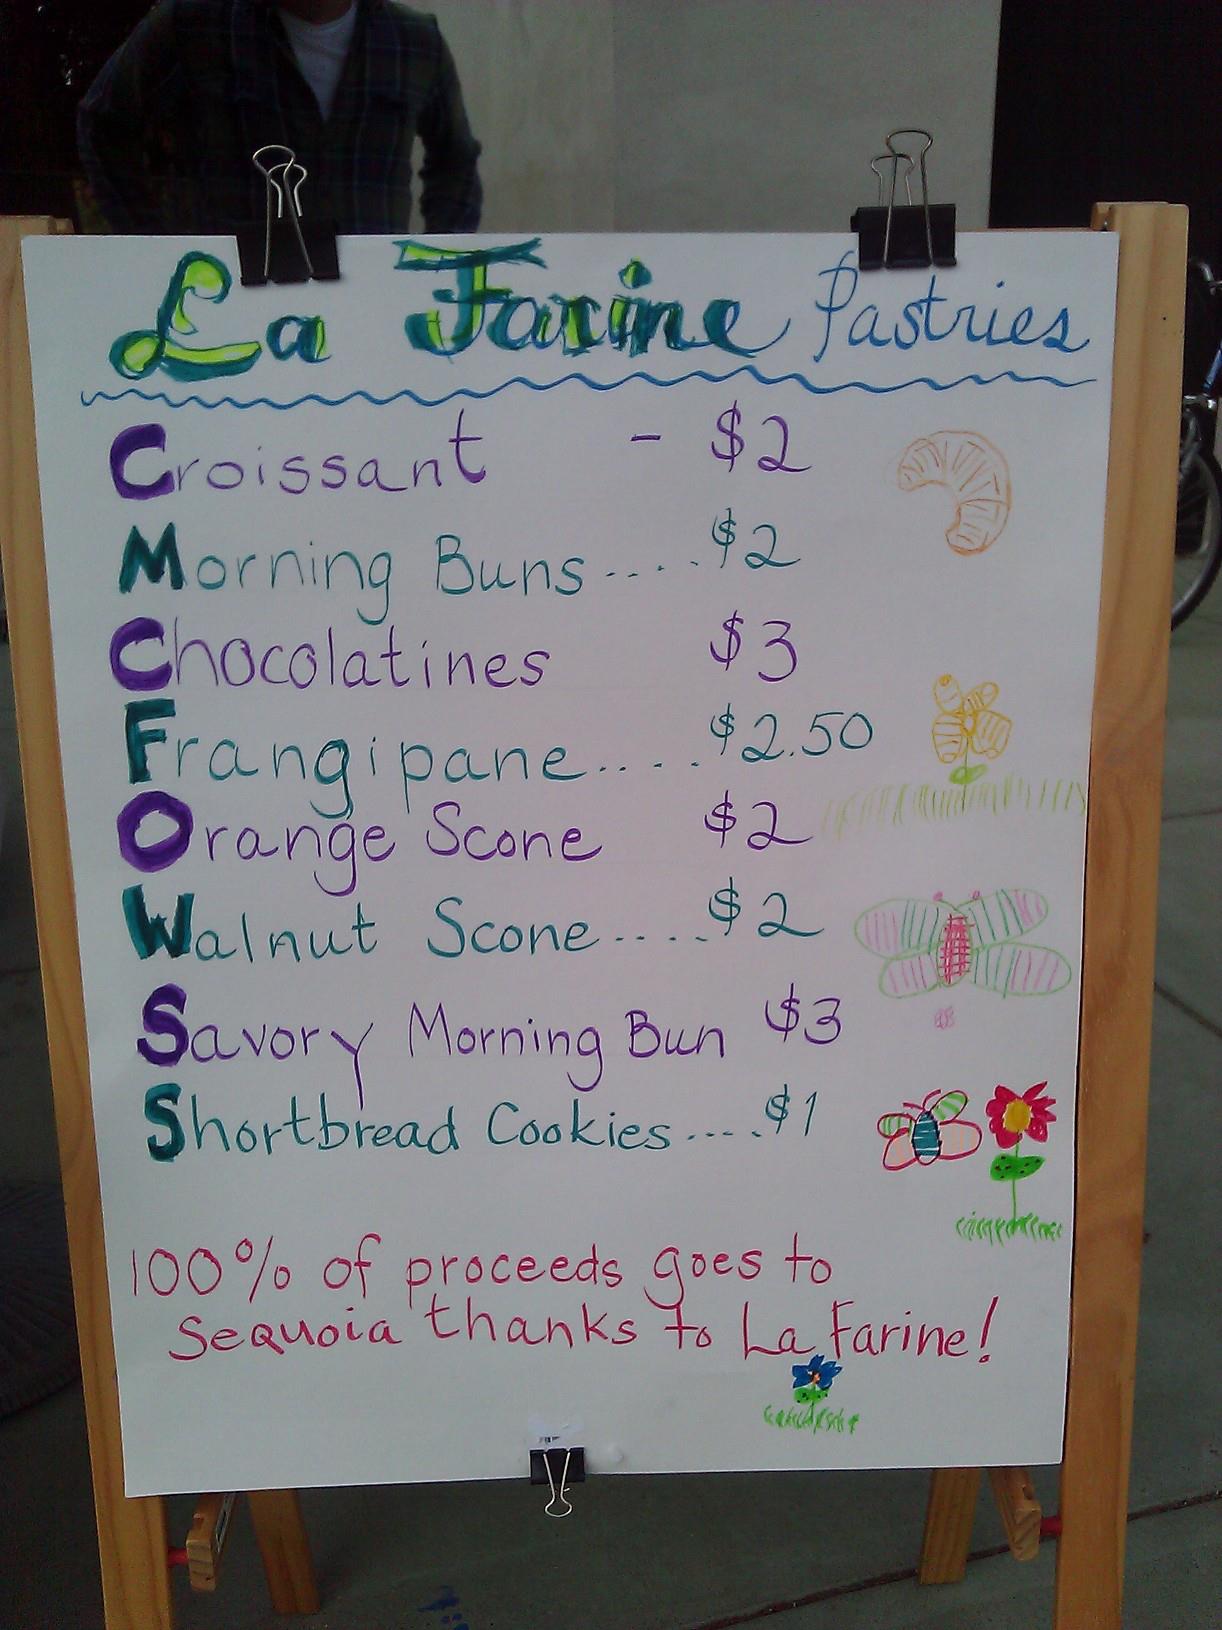 La Farine Pastries
Croissant - $2
Morning Buns .... $2
Chocolatines $3
Frangipane .... $2.50
Orange Scone $2
Walnut Scone .... $2
Savory Morning Bun $3
Shortbread Cookies .... $1
100% of proceeds goes to
Sequoia thanks to La Farine!